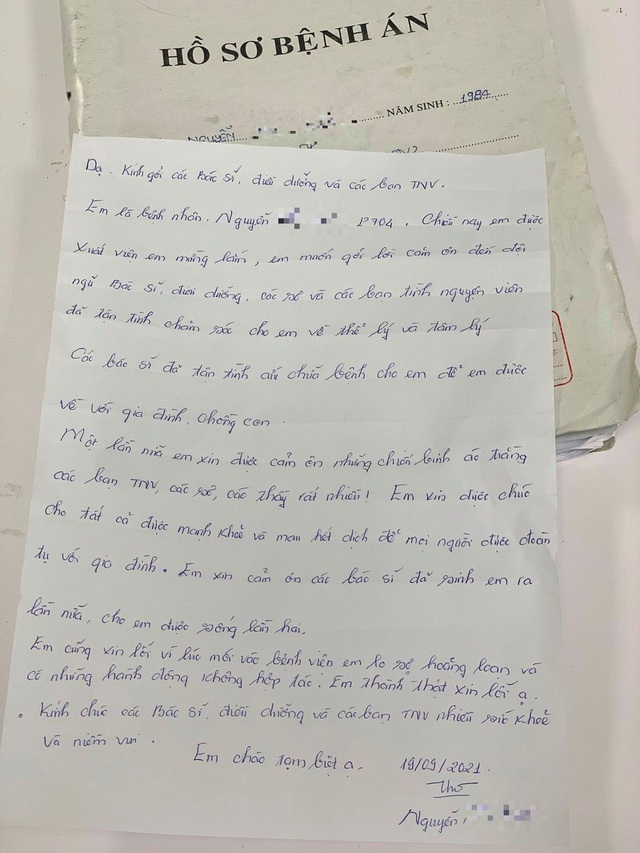 HỒ SƠ BỆNH ÁN
NGUYỄN
NĂM SINH : 1984
Dạ. Kính gởi các Bác sĩ, điều dưỡng và các bạn TNV.
Em là bệnh nhân. Nguyễn P704. Chiều nay em được
xuất viện em mừng lắm, em muốn gởi lời cảm ơn đến đội
ngũ Bác sĩ, điều dưỡng, các sơ và các bạn tình nguyện viên
đã tận tình chăm sóc cho em về thể lý và tâm lý
Các bác sĩ đã tận tình cứu chữa bệnh cho em để em được
về với gia đình, chồng con.
Một lần nữa em xin được cảm ơn những chiến binh áo trắng
các bạn TNV, các sơ, các thầy rất nhiều! Em xin được chúc
cho tất cả được mạnh khoẻ và mau hết dịch để mọi người được đoàn
tụ với gia đình. Em xin cảm ơn các bác sĩ đã sinh em ra
lần nữa, cho em được sống lần hai.
Em cũng xin lỗi vì lúc mới vào bệnh viện em lo sợ hoảng loạn và
có những hành động không hợp tác. Em thành thật xin lỗi ạ.
Kính chúc các Bác sĩ, điều dưỡng và các bạn TNV nhiều sức khoẻ
và niềm vui.
Em chào tạm biệt ạ. 19/09/2021.
Thơ
Nguyễn